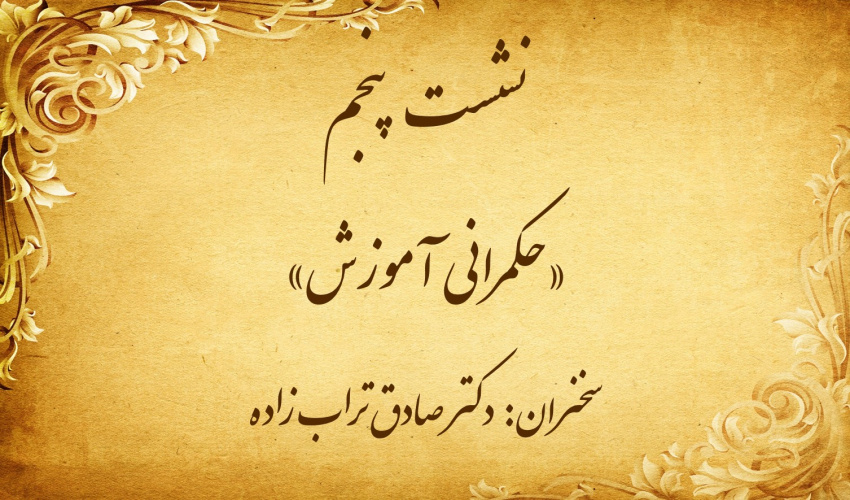 نشست پنجم
«حکمرانی آموزش»
سخنران: دکتر صادق تراب زاده